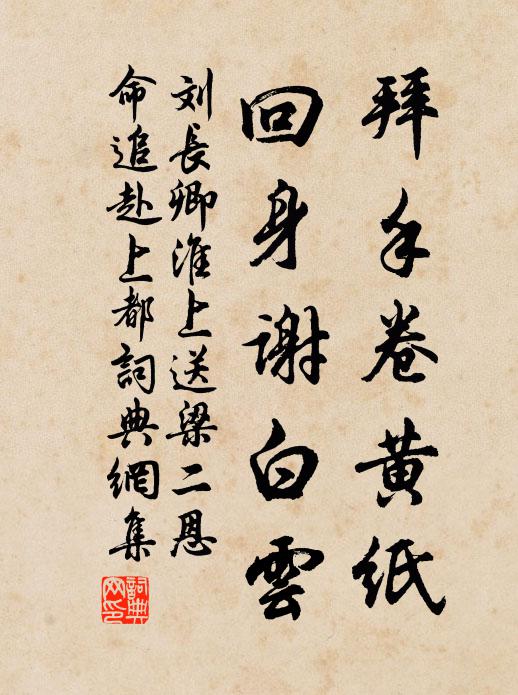 拜手卷黄紙
回身謝白雲
刘長卿淮上送梁二恩
命追赴上都詞典網集
詞典
网印